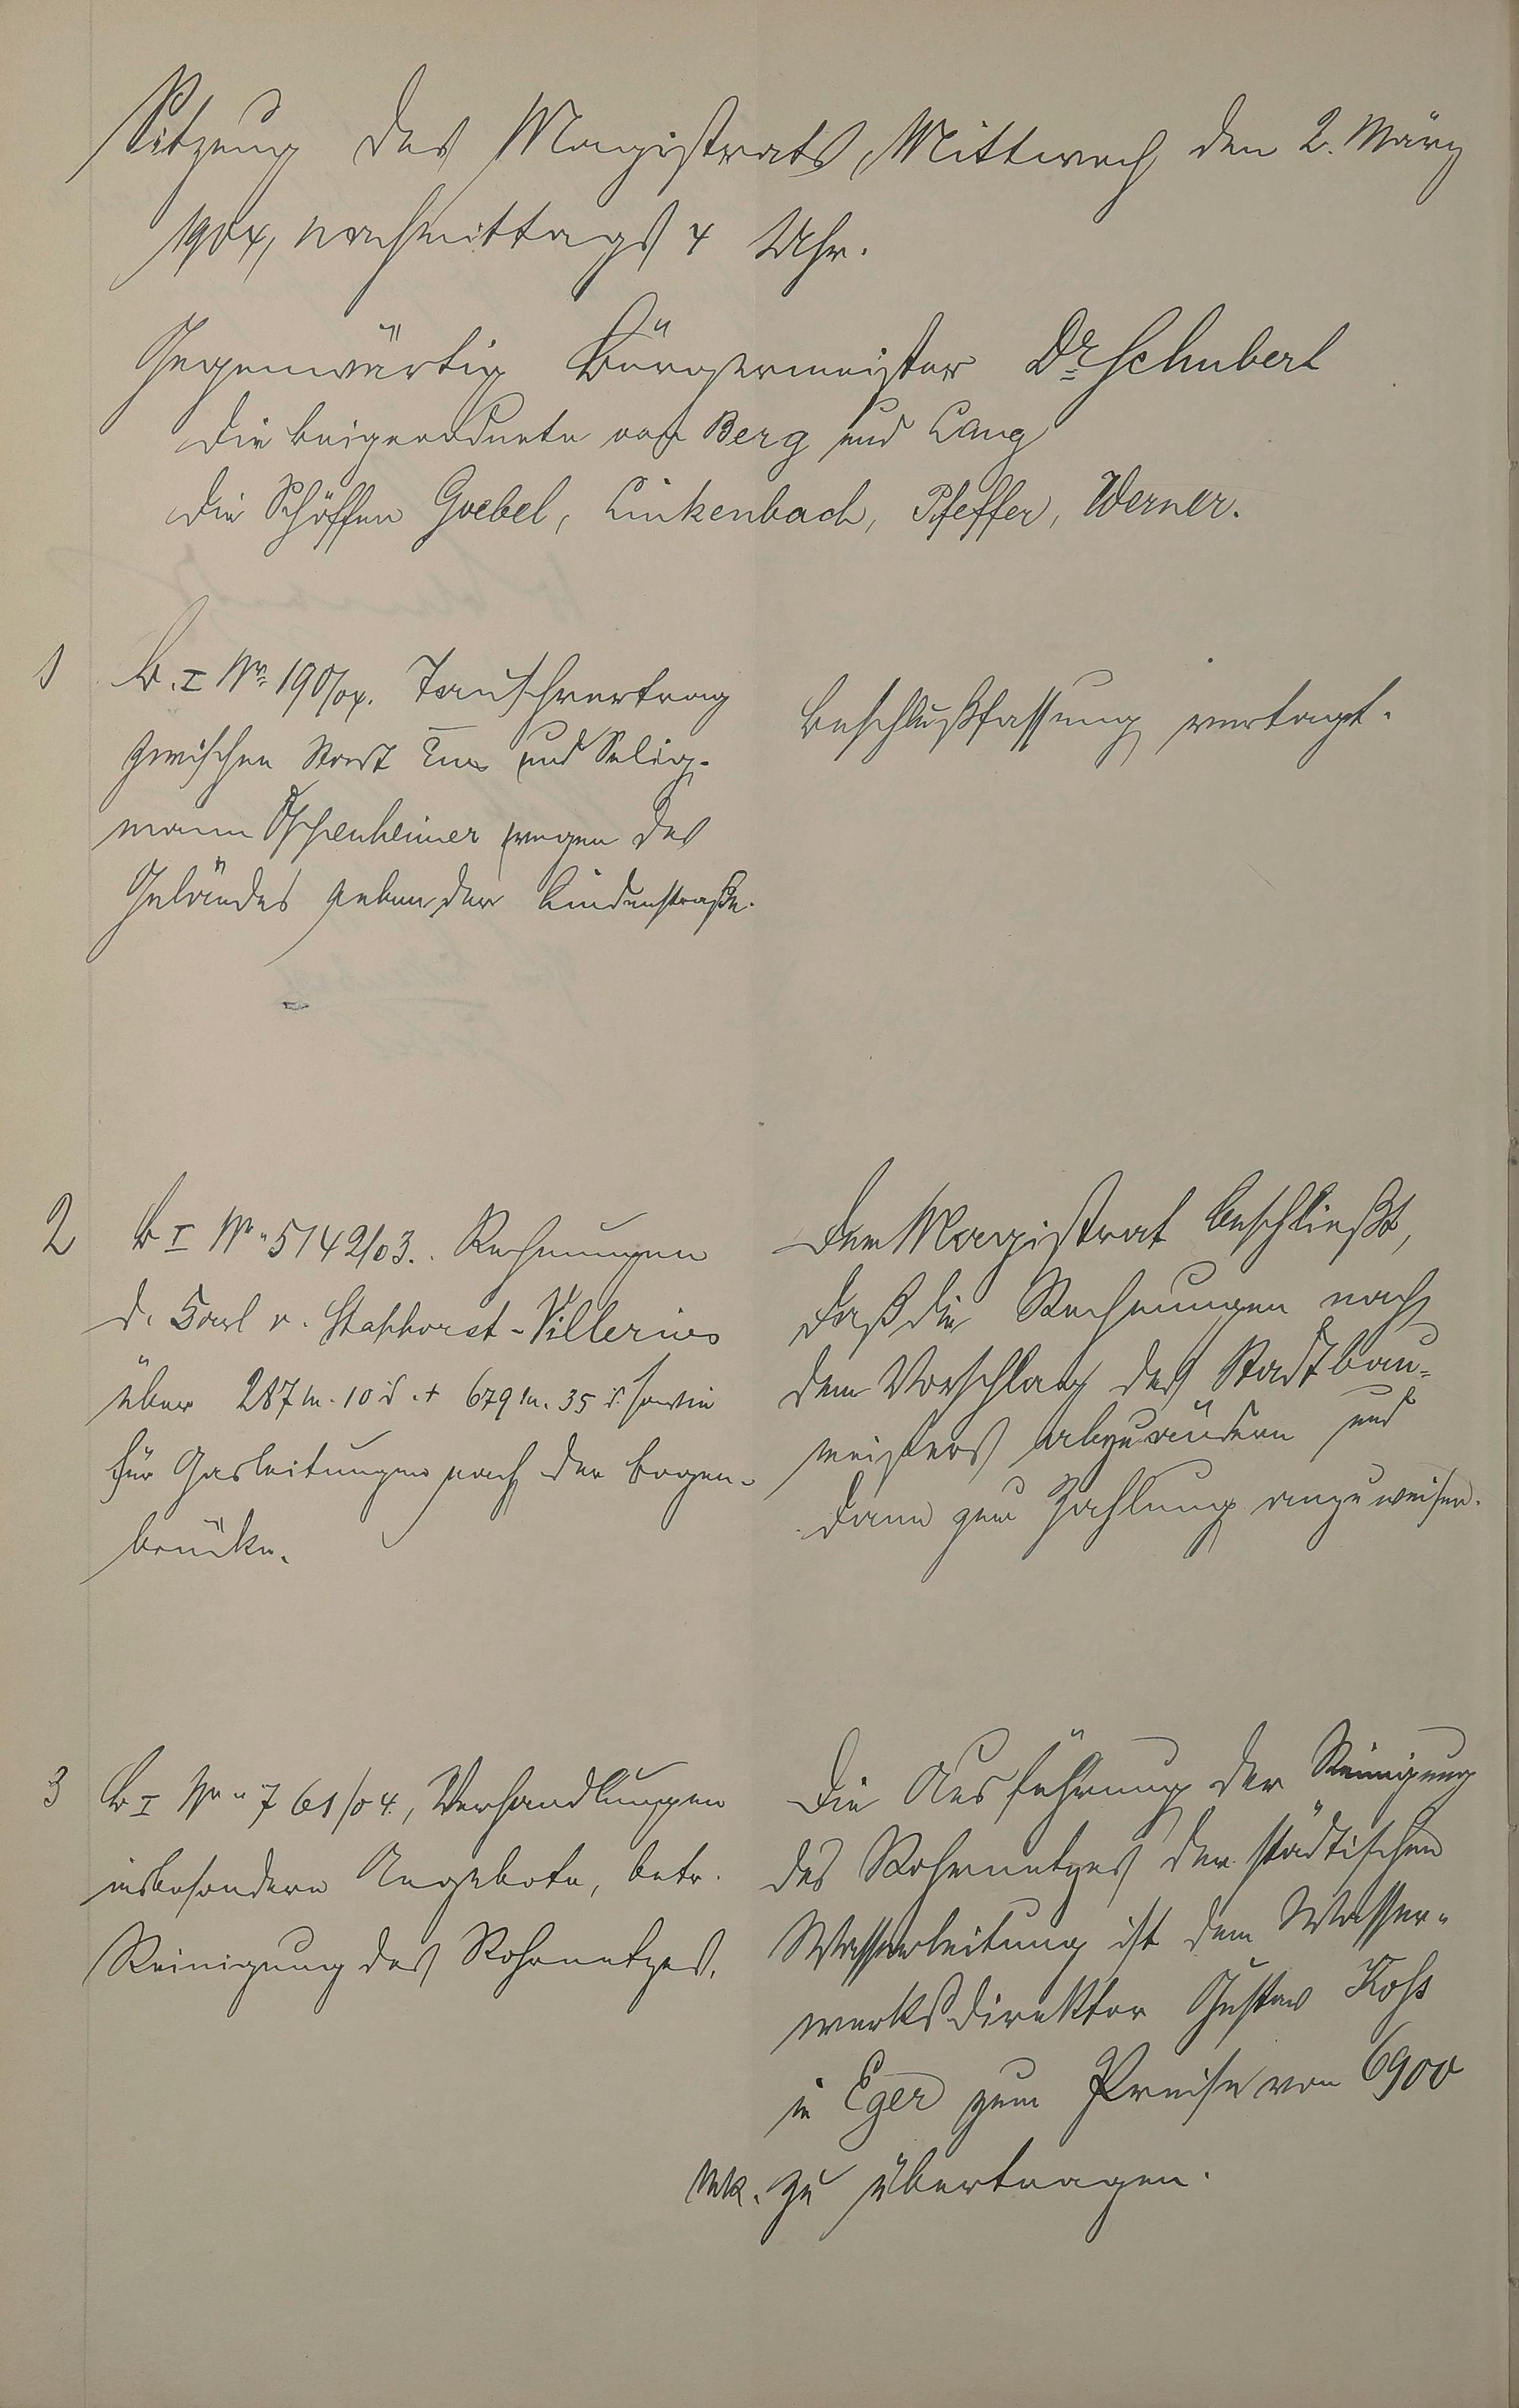 Sitzung des Magistrats, Mittwoch den 2. März
1904, nachmittags 4 Uhr.
Gegenwärtig Bürgermeister Dr. Schubert
die Beigeordnete von Berg und Lang
die Schöffen Goebel, Linkenbach, Pfeffer, Werner.
1
B. I Nr. 190/04. Tauschvertrag
zwischen Stadt Ems und Selig-
mann Oppenheimer wegen des
Geländes neben der Lindenstraße.
Beschlußfassung vertagt.
2
B I Nr. 5142/03. Rechnungen
d. Karl v. Staphorst-Villerius
über 287 M. 10 d. + 679 M. 35 d. sowie
für Gasleitungen nach der Bogen-
brücke.
Der Magistrat beschließt,
daß die Rechnungen nach
dem Vorschlag des Stadtbau-
meisters abzuändern und
dann zur Zahlung anzuweisen.
3
B I Nr. 761/04, Verhandlungen
insbesondere Angebote, betr.
Reinigung des Rohrnetzes.
Die Ausführung der Reinigung
des Rohrnetzes der städtischen
Wasserleitung ist dem Wasser-
werksdirektor Gustav
in Eger zum Preise von 6900
Mk. zu übertragen.